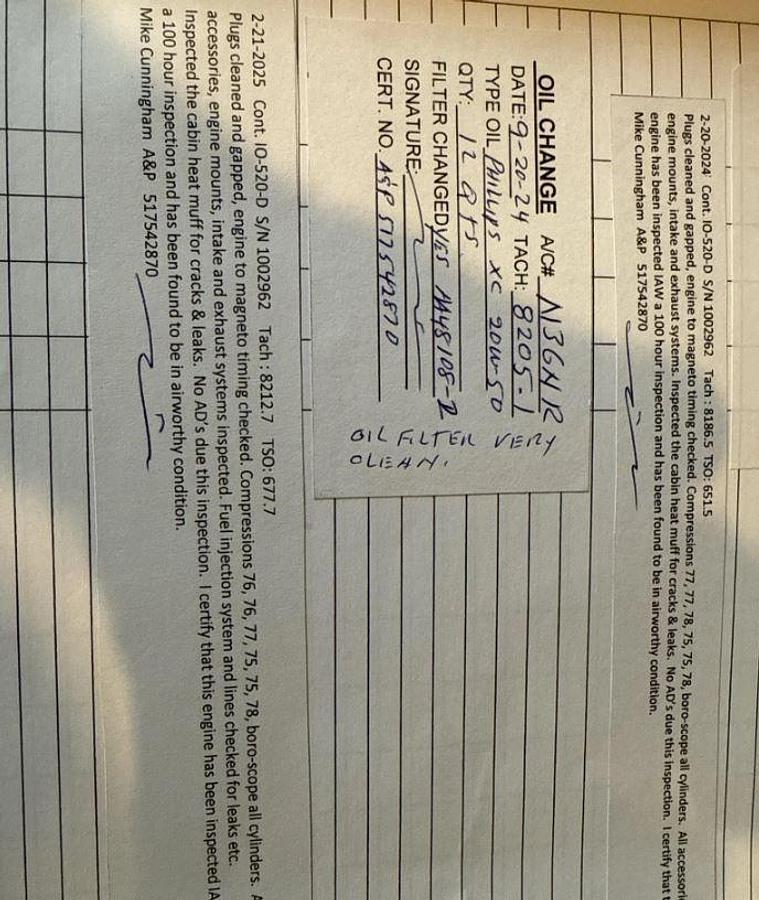 2-20-2024 Cont. IO-520-D S/N 1002962 Tach : 8186.5 TSO: 651.5
Plugs cleaned and gapped, engine to magneto timing checked. Compressions 77, 77, 78, 75, 75, 78, boro-scope all cylinders. All accessori
engine mounts, intake and exhaust systems. Inspected the cabin heat muff for cracks & leaks. No AD's due this inspection. I certify that t
engine has been inspected IAW a 100 hour inspection and has been found to be in airworthy condition.
Mike Cunningham A&P 517542870
OIL CHANGE A/C# N36NR
DATE: 9-20-24 TACH: 8205.1
TYPE OIL PHILLIPS XC 20W-50
QTY: 12 QTS
FILTER CHANGED YES AA48108-2
SIGNATURE:
CERT. NO. A&P 517542870
OIL FILTER VERY
CLEAN.
2-21-2025 Cont. IO-520-D S/N 1002962 Tach : 8212.7 TSO: 677.7
Plugs cleaned and gapped, engine to magneto timing checked. Compressions 76, 76, 77, 75, 75, 78, boro-scope all cylinders. A
accessories, engine mounts, intake and exhaust systems inspected. Fuel injection system and lines checked for leaks etc.
Inspected the cabin heat muff for cracks & leaks. No AD's due this inspection. I certify that this engine has been inspected IA
a 100 hour inspection and has been found to be in airworthy condition.
Mike Cunningham A&P 517542870